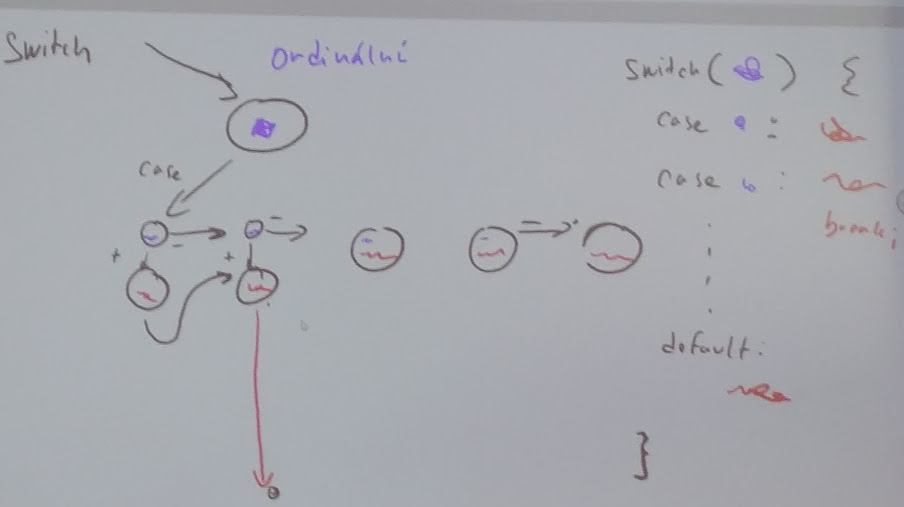 Switch
Ordinální
case
+ - - =
+
switch( ) {
case :
case :
break;
default:
}